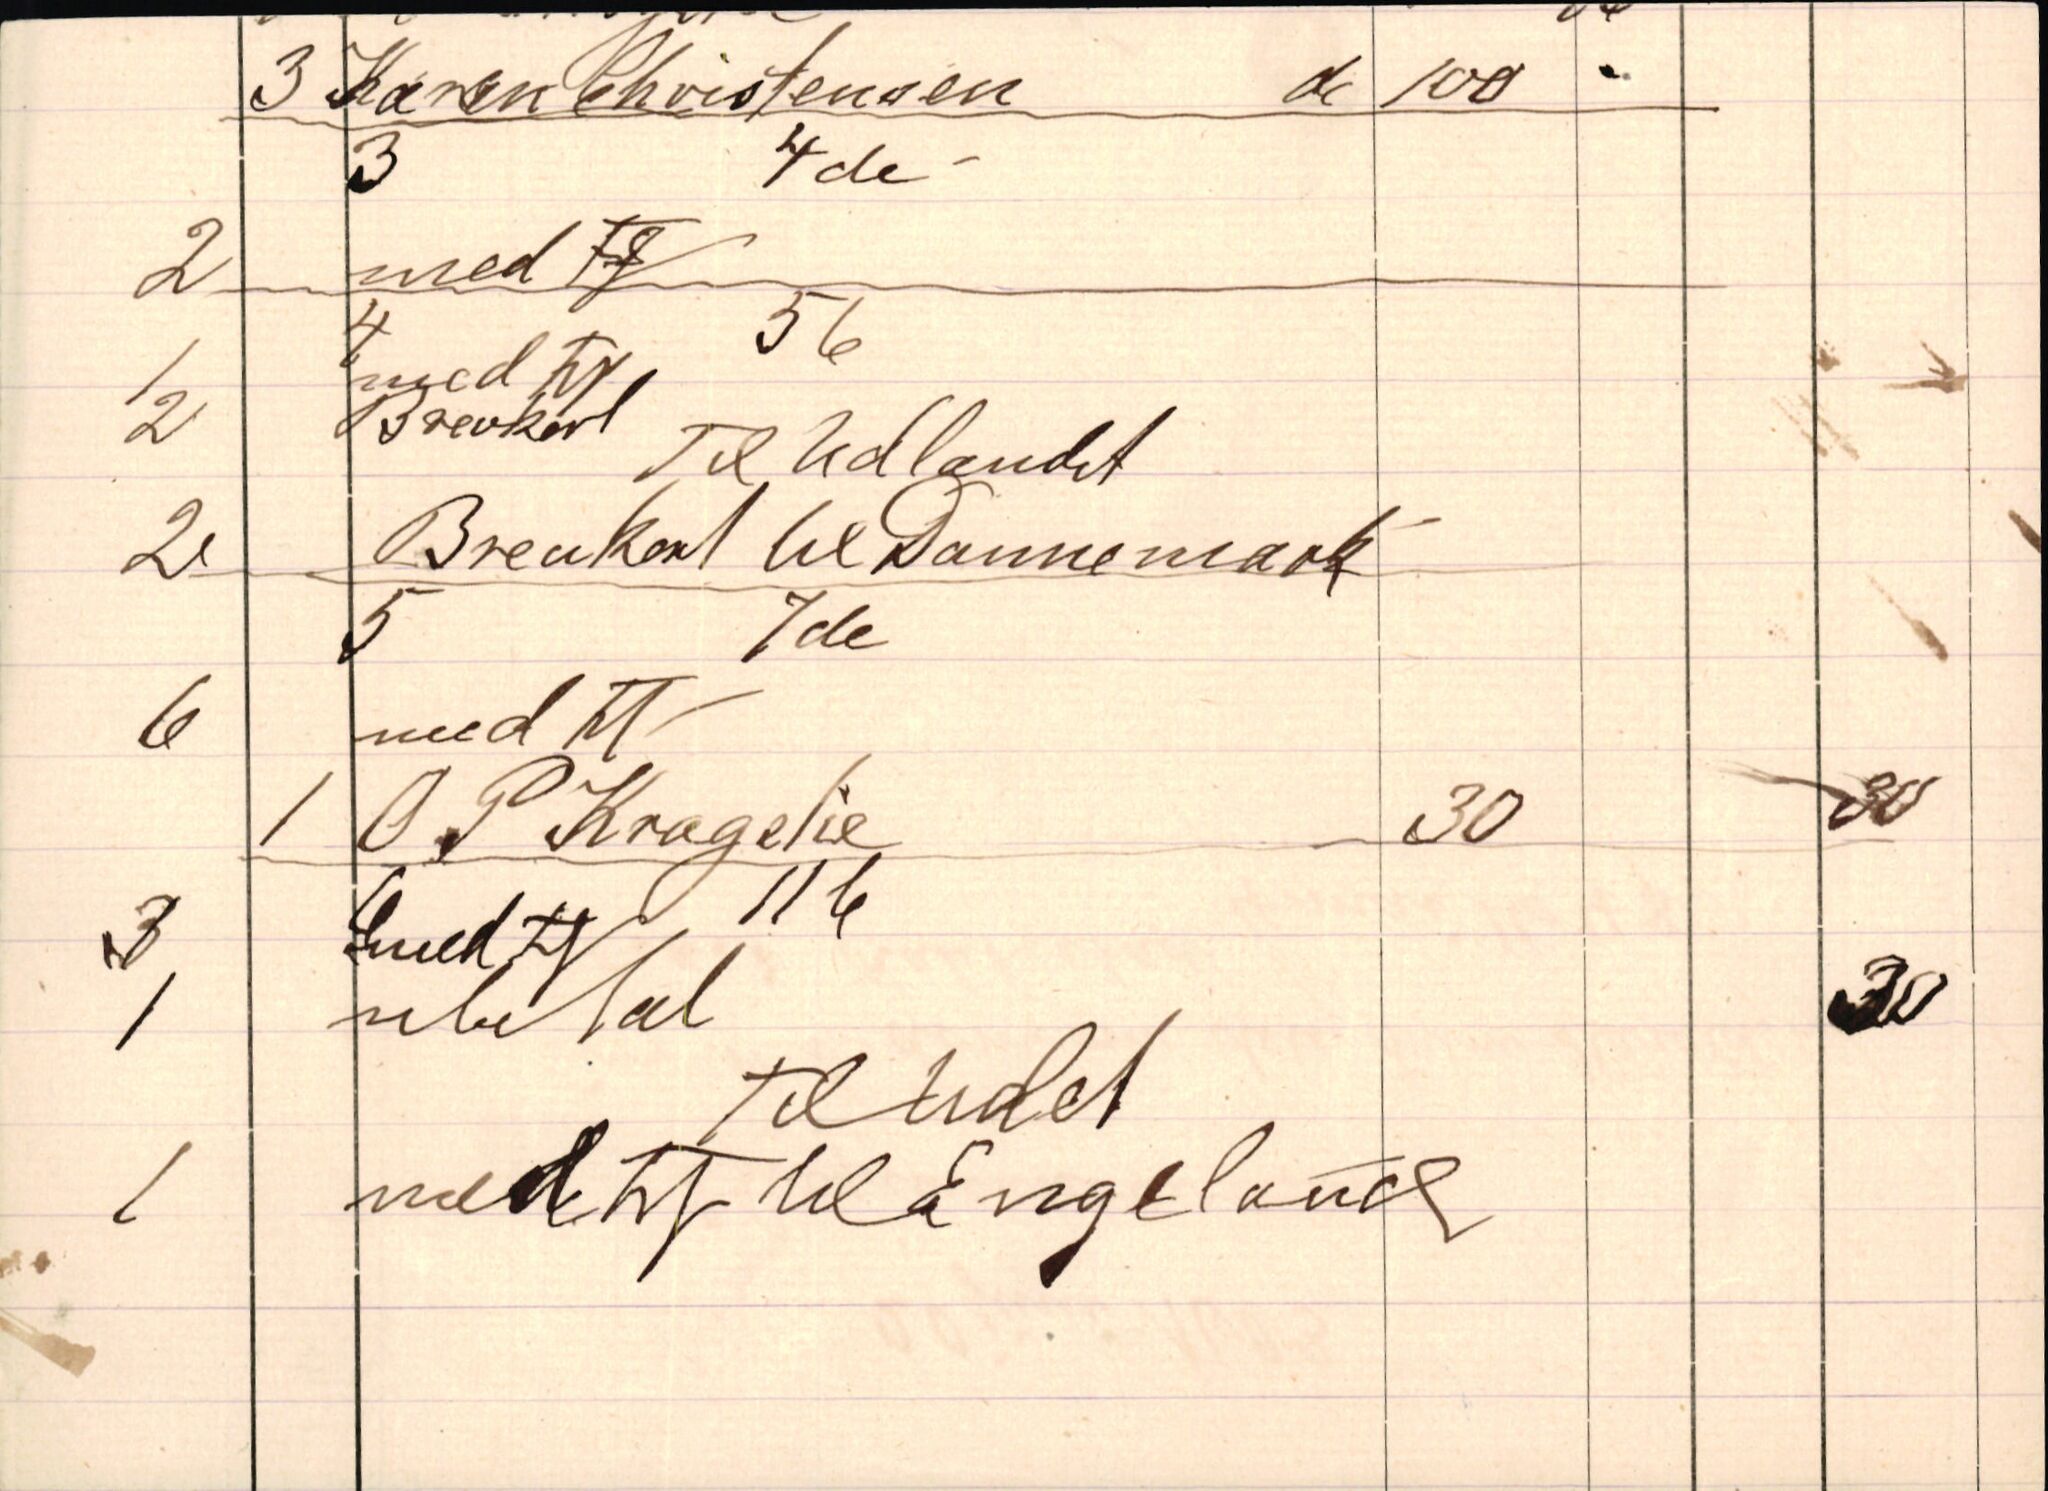 3 Karen Christensen do 100 -
3 4de
2 med
4 56
1 med
2 Brevkort
Til Udlandet
2 Brevkort til Dannemark
5 7de
6 med
1 O. P Kragelie 30 30
6 116
3 med
1 30
Til Udet
1 med til Engeland